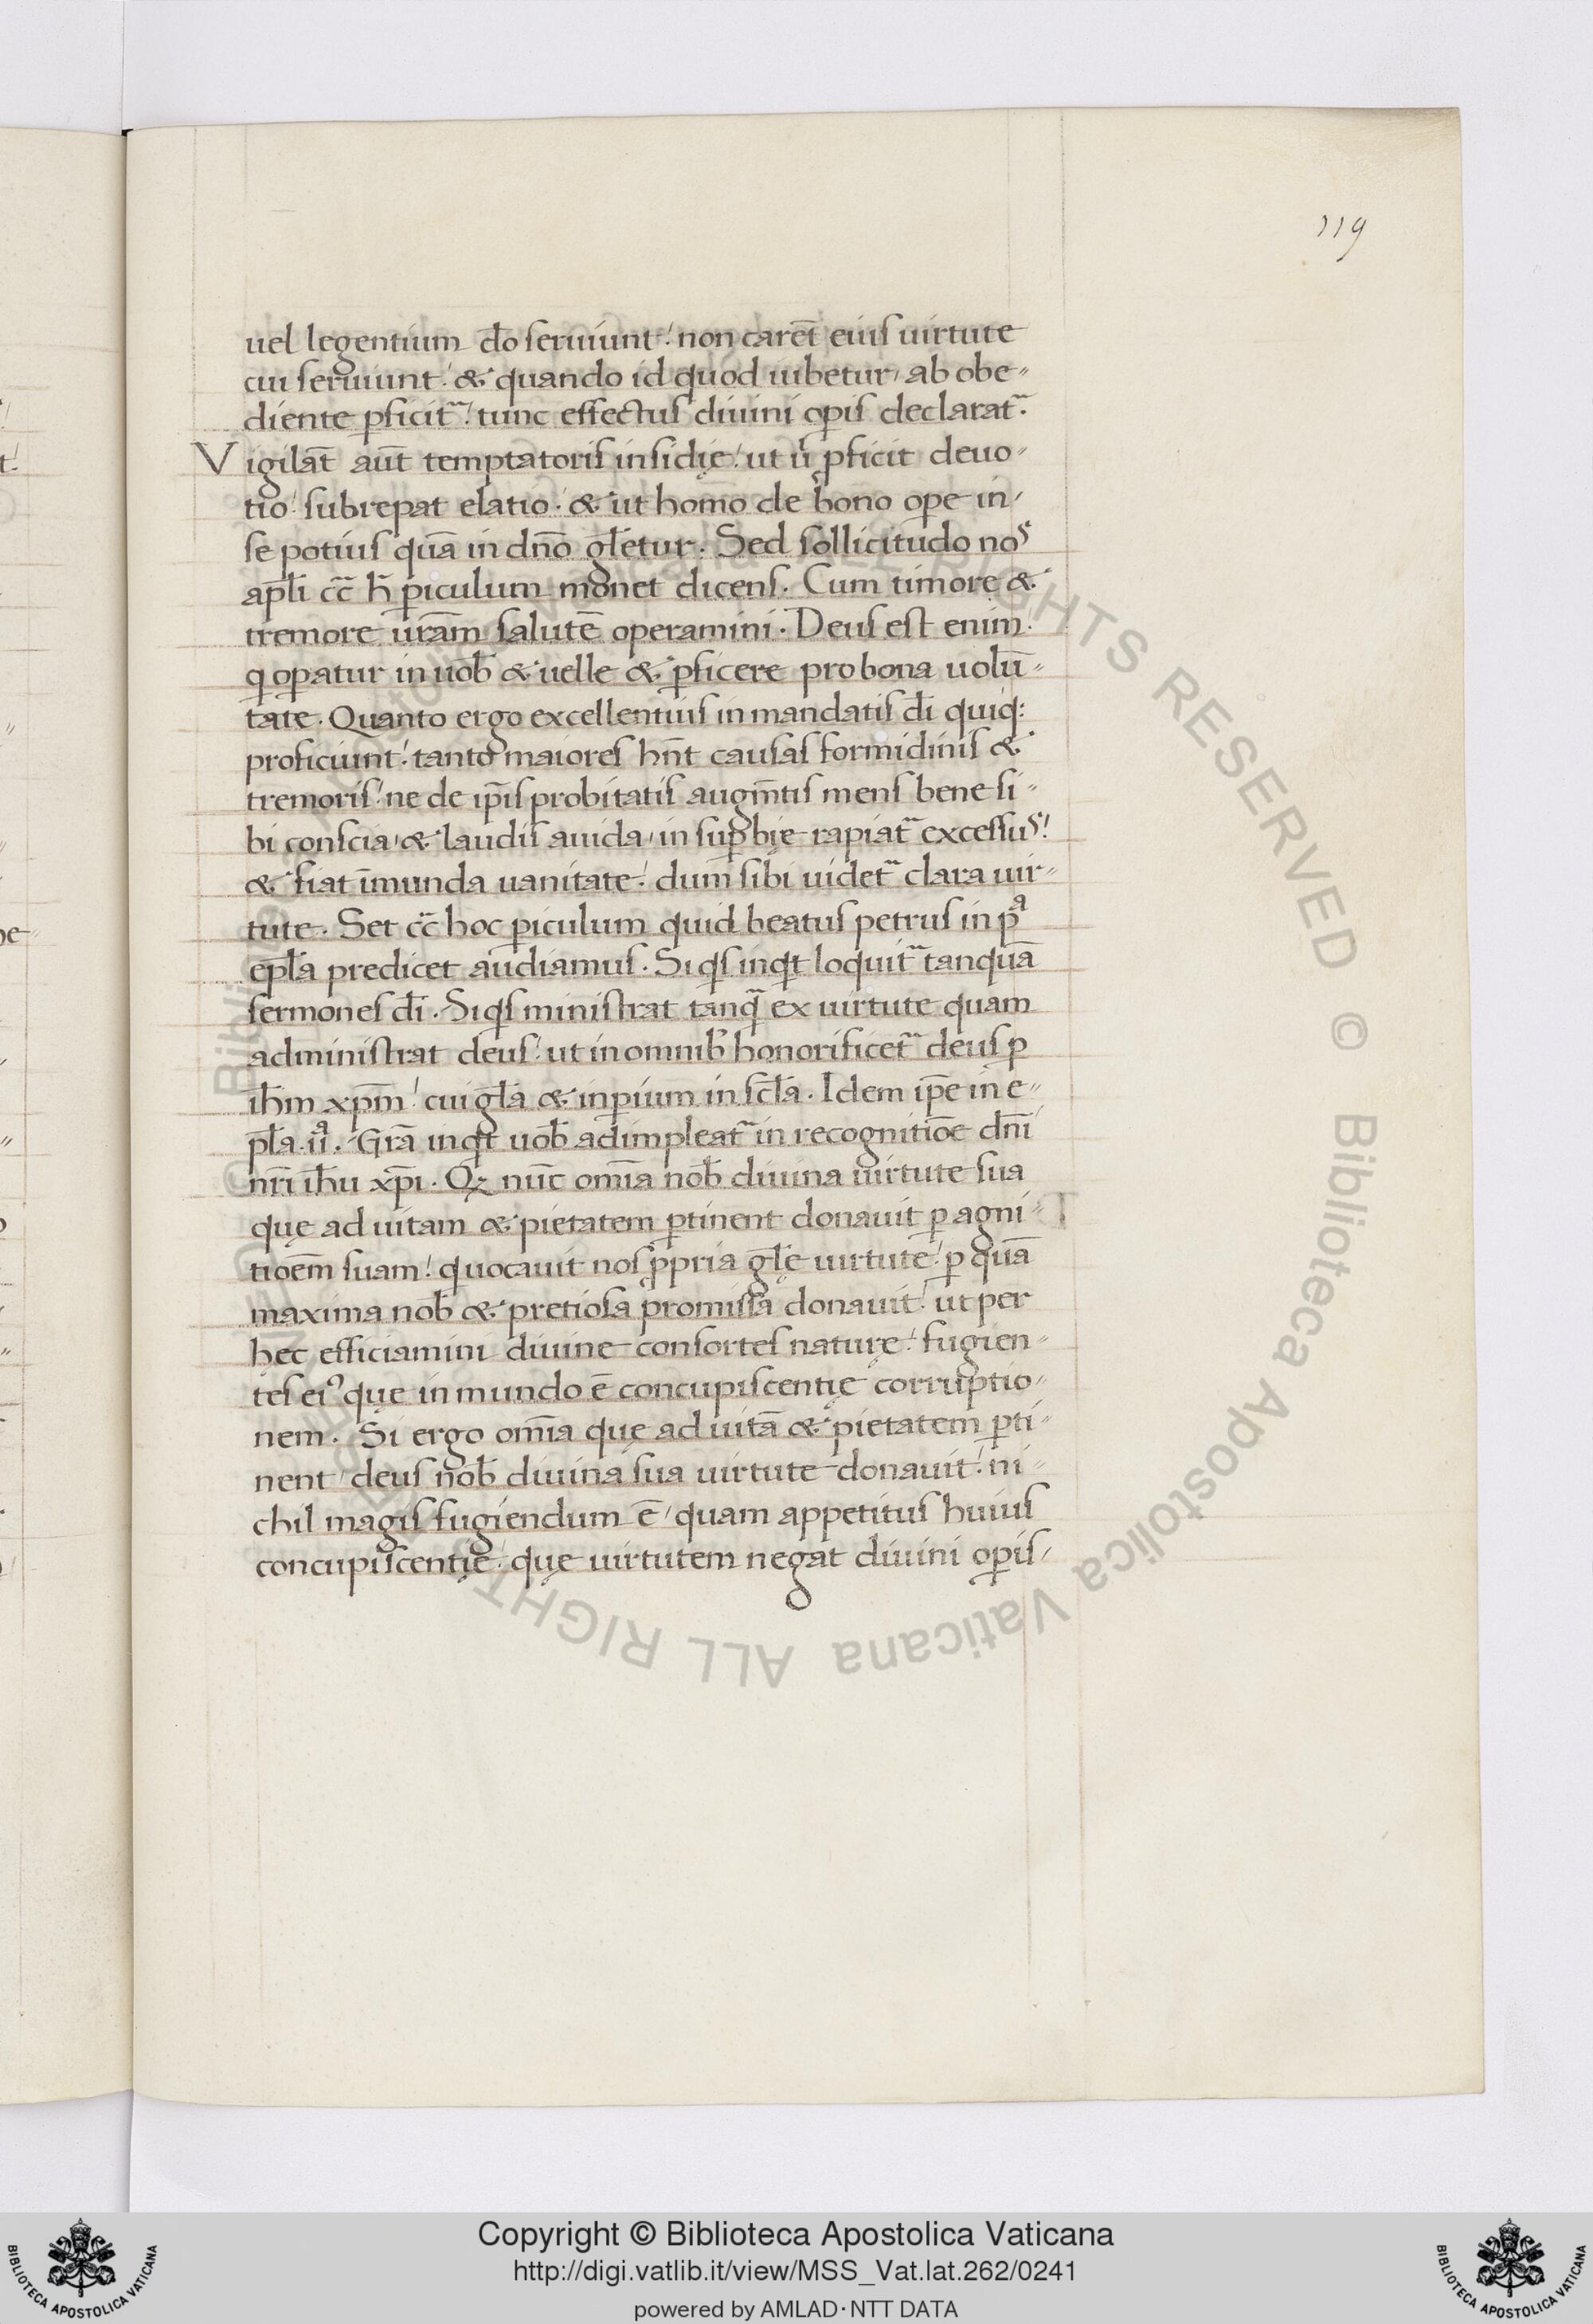 119
uel legentium d̅o seruiunt! non carēt eius uirtute
cui seruiunt! & quando id quod iubetur, ab obe-
diente p̲ficit᷑! tunc effectus diuini op̲is declarat᷑.
Vigilat̄ aut̄ temptatoris insidię! ut ū p̲ficit deuo-
tio! subrepat elatio. & ut homo de bono ope in-
se potius quā in dn̄o gl̄etur. Sed sollicitudo nos
apl̄i cc̄ h̄ p̲iculum monet dicens. Cum timore &
tremore ur̄am salutē operamini. Deus est enim
q op̲atur in uob̄ & uelle & p̲ficere pro bona uolū-
tate. Quanto ergo excellentius in mandatis dī quiq:
proficiunt! tanto maiores hn̄t causas formidinis &
tremoris! ne de ip̄is probitatis augm̄tis mens bene si-
bi conscia, & laudis auida, in sup̲bię rapiat᷑ excessus!
& fiat īmunda uanitate! dum sibi uidet᷑ clara uir-
tute. Set cc̄ hoc p̲iculum quid beatus petrus in pᵃ
epl̄a predicet audiamus. Siqs inqt loquit᷑ tanquā
sermones dī. Siqs ministrat tanq̄ ex uirtute quam
administrat deus! ut in omnib; honorificet᷑ deus p̲
ih̄m xp̄m! cui gl̄a & inp̲ium in scl̄a. Idem ip̄e in e-
pl̄a .iiᵃ. Gr̄a inqt uob̄ adimpleat᷑ in recognitiōe dn̄i
nr̄i ih̄u xp̄i. Qꝫ nūc om̄ia nob̄ diuina uirtute sua
quę ad uitam & pietatem p̲tinent donauit p̲ agni-
tiōem suam! q uocauit nos p̲pria gl̄ę uirtute! p̲ quā
maxima nob̄ & pretiosa promissa donauit! ut per
hęc efficiamini diuine consortes naturę! fugien-
tes eiꝰ quę in mundo ē concupiscentię corruptio-
nem. Si ergo om̄ia quę ad uitā & pietatem p̲ti-
nent deus nob̄ diuina sua uirtute donauit! ni-
chil magis fugiendum ē, quam appetitus huius
concupiscentię! quę uirtutem negat diuini op̲is,
© Biblioteca Apostolica Vaticana ALL RIGHTS RESERVED
Copyright © Biblioteca Apostolica Vaticana
http://digi.vatlib.it/view/MSS_Vat.lat.262/0241
powered by AMLAD·NTT DATA
BIBLIOTECA APOSTOLICA VATICANA
BIBLIOTECA APOSTOLICA VATICANA